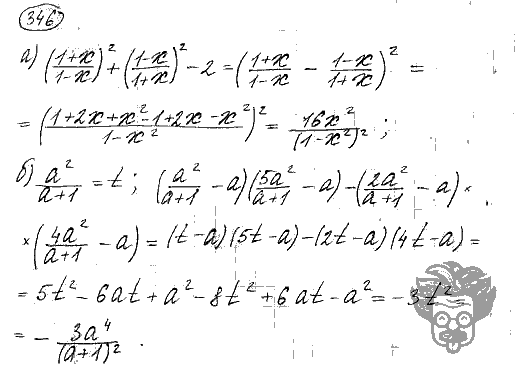 346
а) ((1+x)/(1-x))² + ((1-x)/(1+x))² - 2 = ((1+x)/(1-x) - (1-x)/(1+x))² =
= ((1+2x+x²-1+2x-x²)/(1-x²))² = 16x²/(1-x²)² ;
б) a²/(a+1) = t ; (a²/(a+1) - a)(5a²/(a+1) - a) - (2a²/(a+1) - a) ×
× (4a²/(a+1) - a) = (t-a)(5t-a) - (2t-a)(4t-a) =
= 5t² - 6at + a² - 8t² + 6at - a² = -3t² =
= - 3a⁴/(a+1)² .